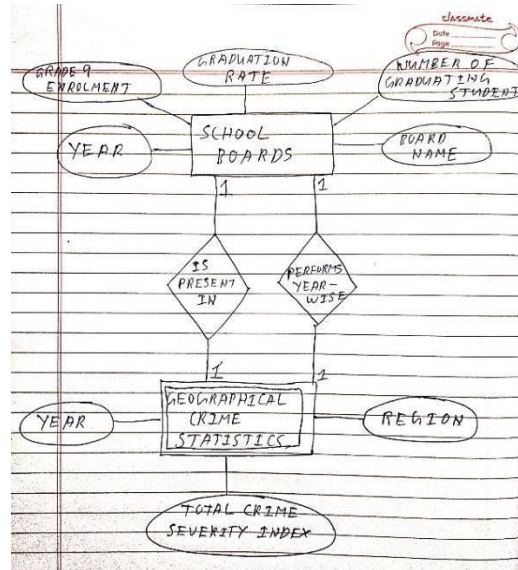 classmate
Date
Page
GRADE 9
ENROLMENT
GRADUATION
RATE
NUMBER OF
GRADUATING
STUDENT
YEAR
SCHOOL
BOARDS
BOARD
NAME
1
1
IS
PRESENT
IN
PERFORMS
YEAR-
WISE
1
1
YEAR
GEOGRAPHICAL
CRIME
STATISTICS
REGION
TOTAL CRIME
SEVERITY INDEX